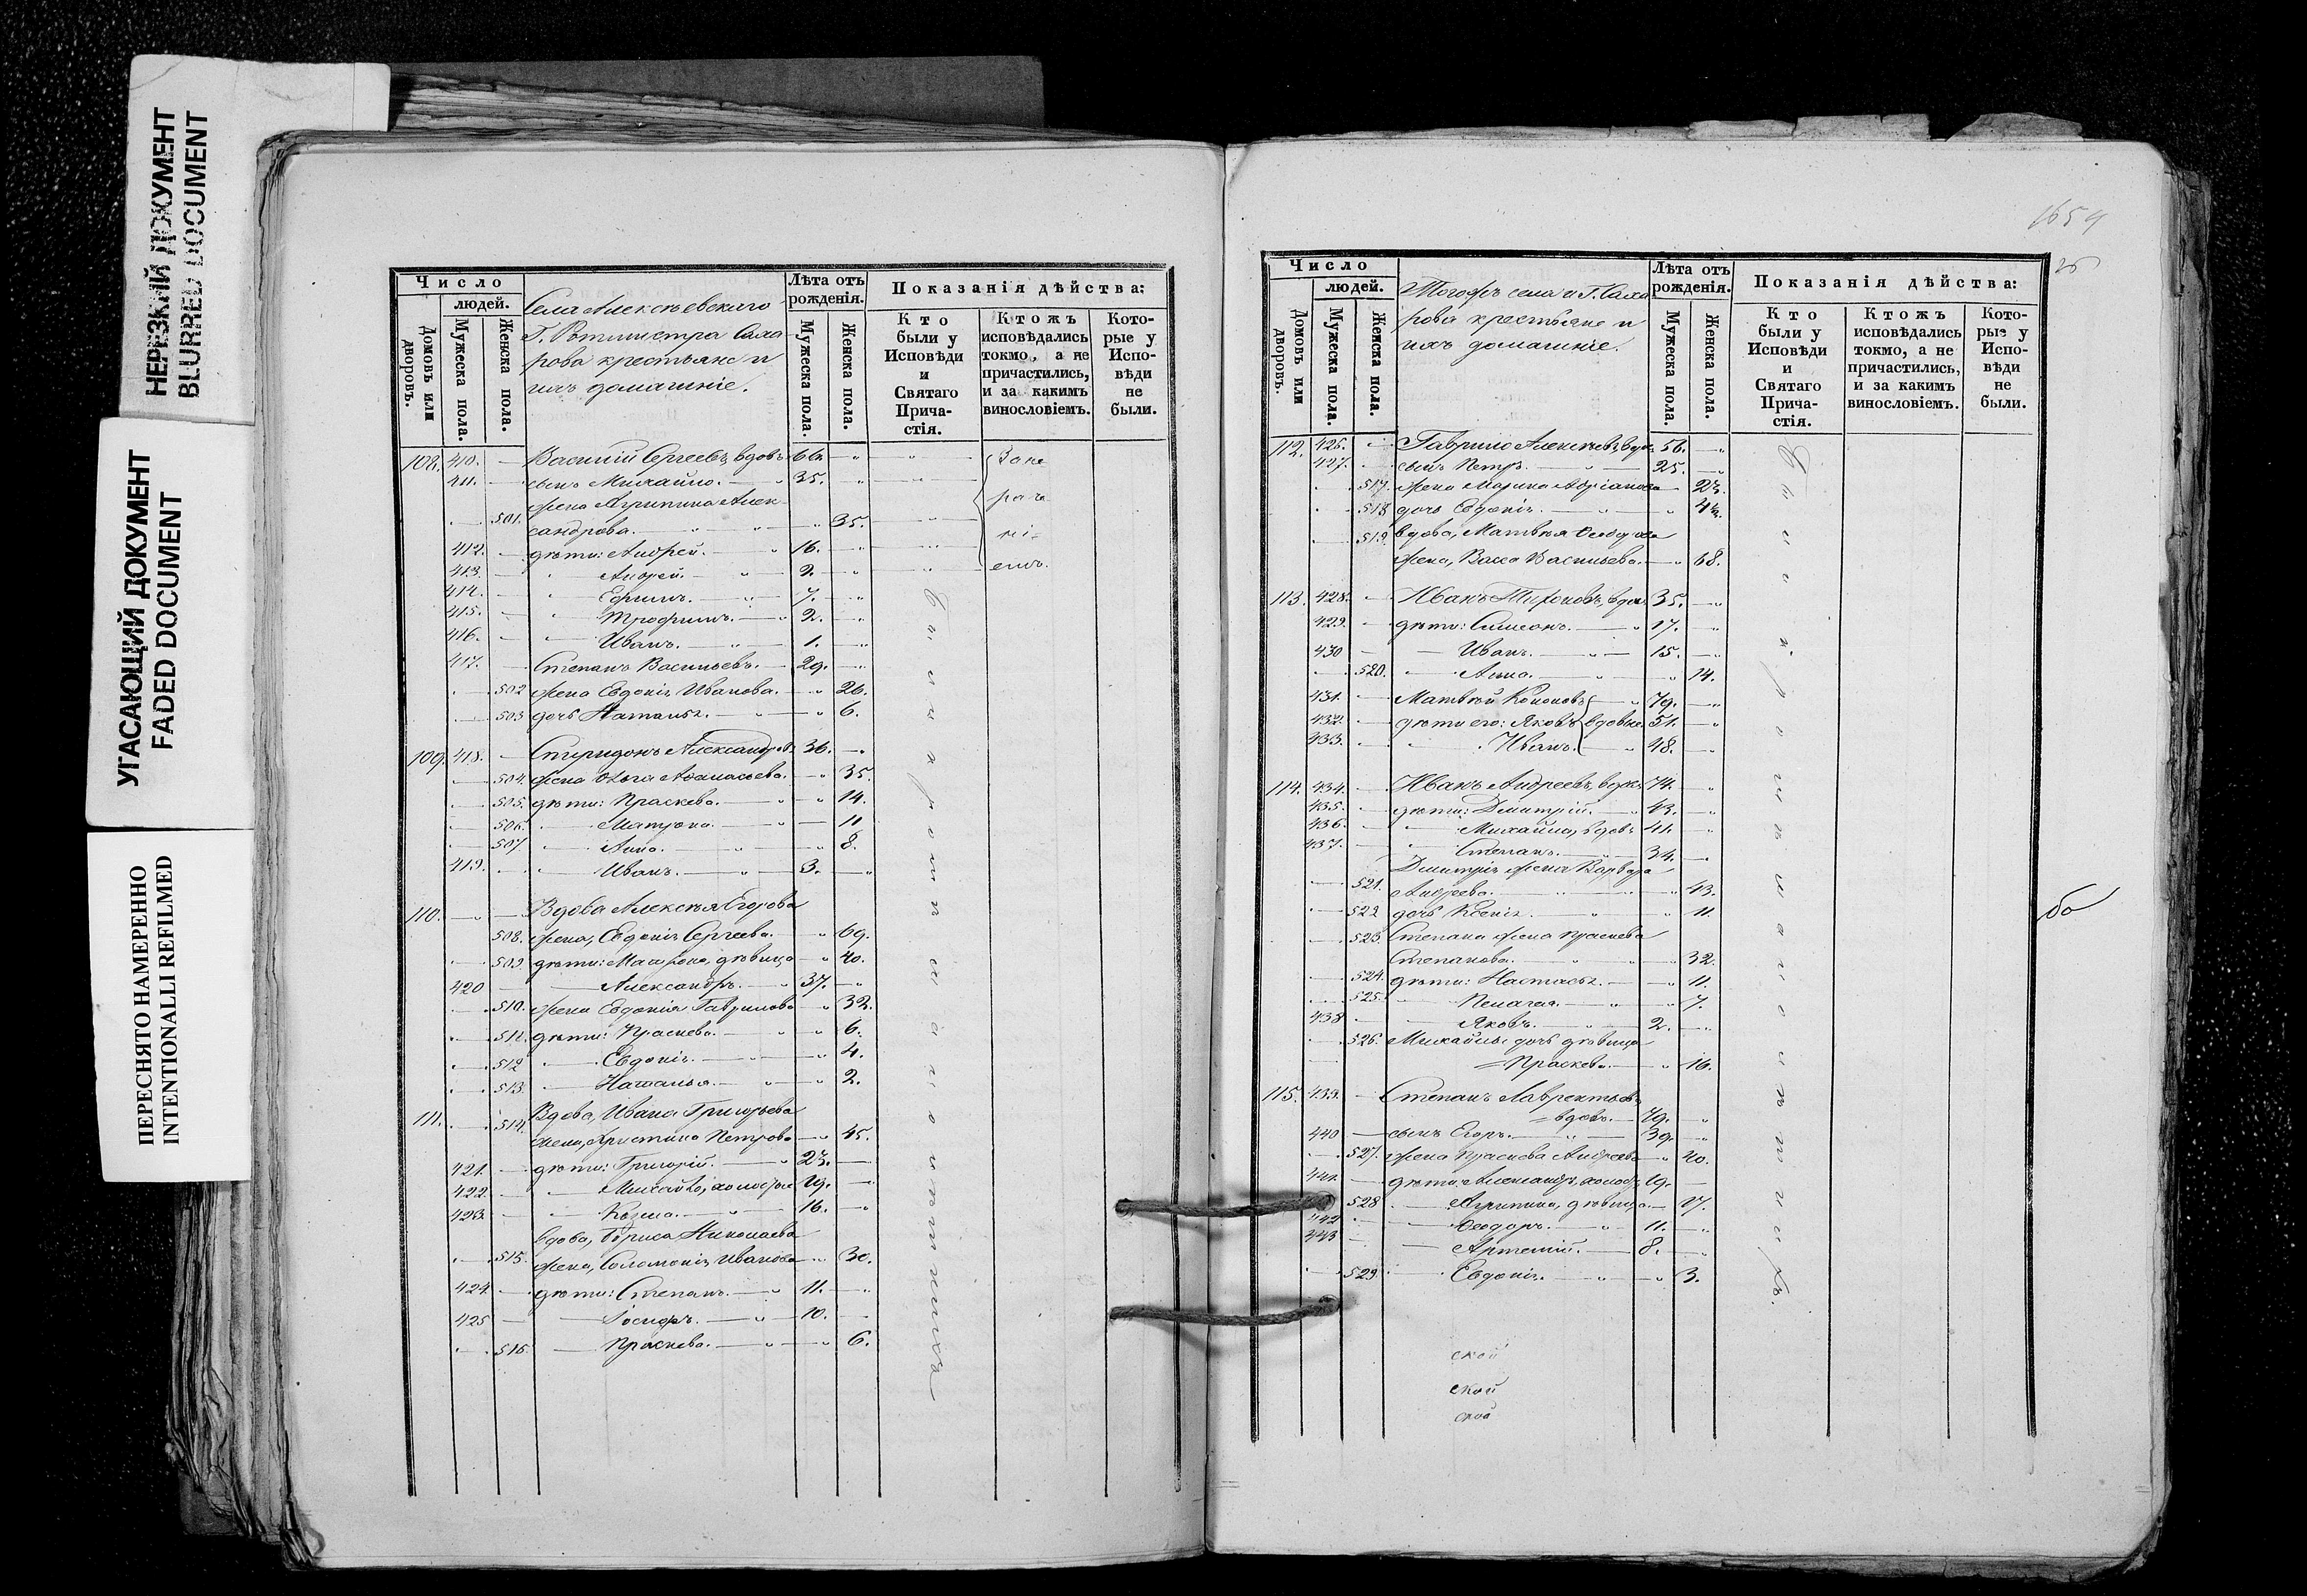 НЕРЕЗКИЙ ДОКУМЕНТ
BLURRED DOCUMENT
УГАСАЮЩИЙ ДОКУМЕНТ
FADED DOCUMENT
ПЕРЕСНЯТО НАМЕРЕННО
INTENTIONALLI REFILMED
Число
людей.
Домовъ или дворовъ.
Мужеска пола.
Женска пола.
Села Алексѣевскаго
Г. Ротмистра Саха
рова крестьяне и
ихъ домашніе.
Лѣта отъ рожденія.
Мужеска пола.
Женска пола.
Показанія дѣйства:
Кто были у Исповѣди и Святаго Прича-стія.
Ктожъ исповѣдались токмо, а не причастились, и за какимъ винословіемъ.
Кото-рые у Испо-вѣди не были.
108. 410. Василій Сергеевъ, вдовъ 66.
411. сынъ Михайло. 35.
жена Агрипина Алек-
501. сандрова. 35.
412. дѣти: Андрей. 16.
413. Андрей. 9.
414. Ефимъ. 7.
415. Трофимъ. 2.
416. Иванъ. 1.
417. Степанъ Васильевъ. 29.
502 жена Евдокія Иванова. 26.
503 дочь Наталья. 6.
За не
раче
ні-
емъ.
109. 418. Спиридонъ Александров. 36.
504. жена Ольга Афанасьева. 35.
505. дѣти: Праскева. 14.
506. Матрона. 11
507. Анна. 8.
419. Иванъ. 3.
110. Вдова Алексѣя Егорова
508. жена, Евдокія Сергеева. 69.
509. дѣти: Матрона, дѣвица 40.
420 Александръ. 37.
510. жена Евдокія Гаврилова 32.
511. дѣти: Праскева. 6.
512 Евдокія. 4.
513. Наталья. 2.
111. 514. Вдова, Ивана Григорьева
жена, Христина Петрова 45.
421. дѣти: Григорій. 23.
422. Михайло, холостъ 19.
423. Козма. 16.
вдова, Бориса Николаева
515. жена, Соломонія Иванова 30.
424. дѣти: Степанъ. 11.
425 Іосифъ. 10.
516. Праскева. 6.
1659
26
Число
людей.
Домовъ или дворовъ.
Мужеска пола.
Женска пола.
Тогожъ села и Г. Саха
рова крестьяне и
ихъ домашніе.
Лѣта отъ рожденія.
Мужеска пола.
Женска пола.
Показанія дѣйства:
Кто были у Исповѣди и Святаго Прича-стія.
Ктожъ исповѣдались токмо, а не причастились, и за какимъ винословіемъ.
Кото-рые у Испо-вѣди не были.
112. 426. Гаврило Алексѣевъ, вдов. 56.
427. сынъ Петръ. 25.
517. жена Марина Адріанова 23.
518 дочь Евдокія.
519. вдова, Матвѣя Ѳеодорова
жена, Васса Васильева. 68.
113. 428. Иванъ Тихоновъ, вдов. 35.
429. дѣти: Симеонъ. 17.
430 Иванъ. 15.
520. Анна. 14.
431. Матвѣй Кононовъ 79.
432. дѣти его: Яковъ вдовые 51.
433. Иванъ. 48.
114. 434. Иванъ Андреевъ, вдовъ 74.
435. дѣти: Дмитрій. 43.
436. Михайло, вдовъ 41.
437. Степанъ. 34.
Дмитрія жена Варвара
521. Андреева. 43.
522 дочь Ксенія. 11.
523. Степана жена Праскева
Степанова. 32.
524. дѣти: Настасья. 11.
525. Пелагея. 7.
438 Яковъ. 2.
526. Михайлы дочь дѣвица
Праскева. 16.
115. 439. Степанъ Лаврентьевъ
вдовъ. 79.
440 сынъ Егоръ. 39.
527. жена Праскева Андреева 40.
441. дѣти: Александръ, холост. 19.
528 Агрипина, дѣвица. 17.
442 Ѳеодоръ. 11.
443 Артемій. 8.
529. Евдокія. 3.
ской
ской
ской